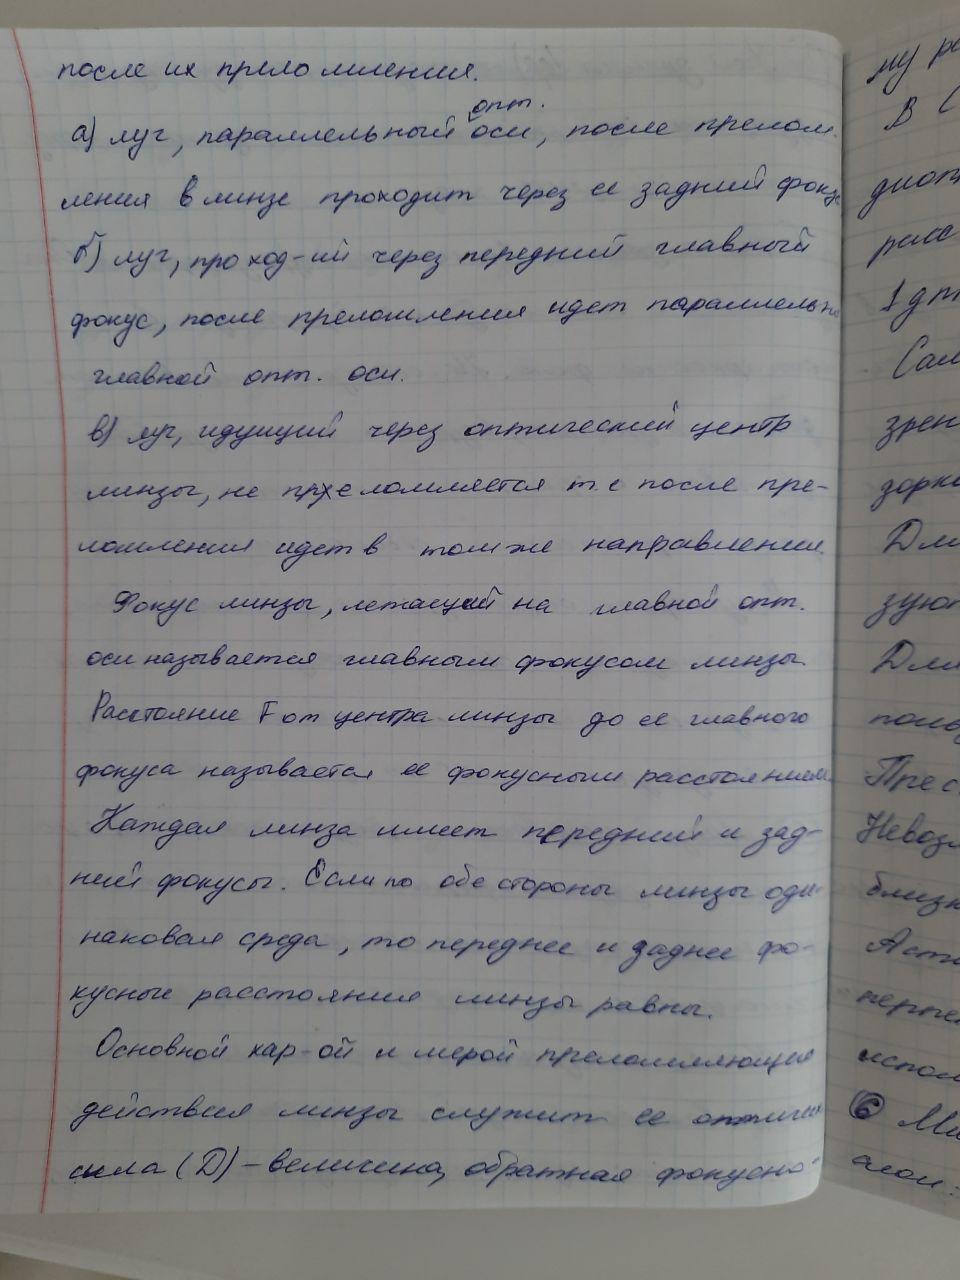 после их преломления.
опт.
а) луч, параллельный оси, после прелом-
ления в линзе проходит через ее задний фокус
б) луч, проход-ий через передний главный
фокус, после преломления идет параллельно
главной опт. оси.
в) луч, идущий через оптический центр
линзы, не преломляется т.е после пре-
ломления идет в том же направлении.
Фокус линзы, лежащий на главной опт.
оси называется главным фокусом линзы.
Расстояние F от центра линзы до ее главного
фокуса называется ее фокусным расстоянием
Каждая линза имеет передний и зад-
ний фокусы. Если по обе стороны линзы оди-
наковая среда, то переднее и заднее фо-
кусные расстояния линзы равны.
Основной хар-ой и мерой преломляющего
действия линзы служит ее оптическ
сила (D) – величина, обратная фокусно-
му ра
В С
диопт
расс
1 дпт
Сам
зрен
зорк
Дл
зуют
Для
польз
Прес
Невоз
близк
Асти
перпе
испол
⑥ Ми